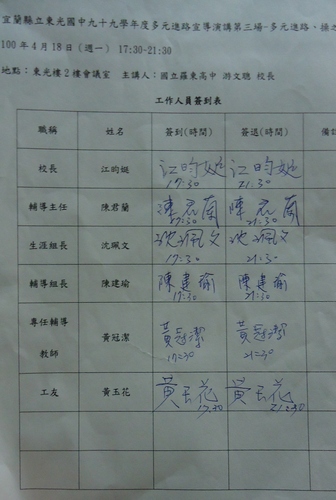 宜蘭縣立東光國中九十九學年度多元進路宣導演講第三場-多元進路、操之
100年4月18日（週一） 17:30-21:30
地點：東光樓2樓會議室 主講人：國立羅東高中 游文聰 校長
工作人員簽到表
職稱 姓名 簽到(時間) 簽退(時間) 備
校長 江昀娫 江昀娫 17:30 江昀娫 21:30
輔導主任 陳君蘭 陳君蘭 17:30 陳君蘭 21:30
生涯組長 沈珮文 沈珮文 17:30 沈珮文 21:30
輔導組長 陳建瑜 陳建瑜 17:30 陳建瑜 21:30
專任輔導
教師 黃冠潔 黃冠潔 17:30 黃冠潔 21:30
工友 黃玉花 黃玉花 17:30 黃玉花 21:30